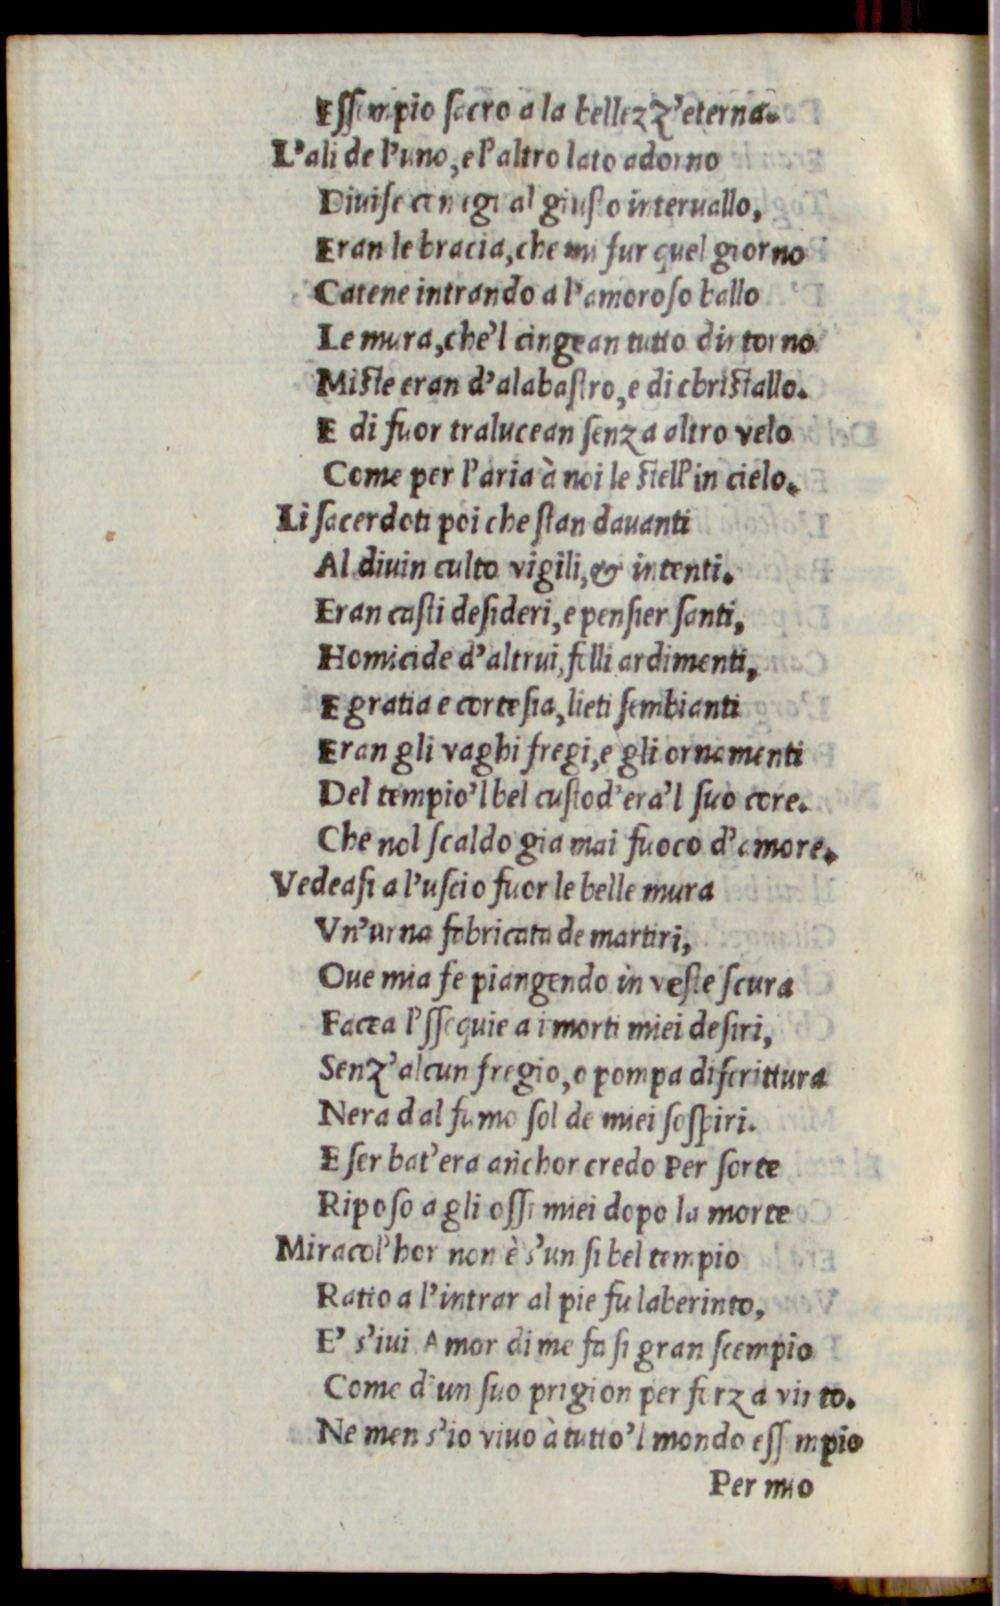 Essempio sacro a la bellezz'eterna.
L'ali de l'uno, e l'altro lato adorno
Diuise con egual giusto interuallo,
Eran le bracia, che mi fur quel giorno
Catene intrando a l'amoroso ballo
Le mura, che'l cingean tutto dintorno
Miste eran d'alabastro, e di christallo.
E di fuor tralucean senza altro velo
Come per l'aria à noi le stell' in cielo.
Li sacerdoti poi che stan dauanti
Al diuin culto vigili, & intenti.
Eran casti desideri, e pensier santi,
Homicide d'altrui, felli ardimenti,
E gratia e cortesia, lieti sembianti
Eran gli vaghi fregi, e gli ornamenti
Del tempio'l bel custod'era'l suo core.
Che nol scaldo gia mai fuoco d'amore.
Vedeasi a l'uscio fuor le belle mura
Vn'urna fabricata de martiri,
Oue mia fe piangendo in veste scura
Facea l'essequie a i morti miei desiri,
Senz'alcun fregio, o pompa di scrittura
Nera dal fumo sol de miei sospiri.
E serbat'era anchor credo per sorte
Riposo a gli ossi miei dopo la morte
Miracol' hor non è s'un si bel tempio
Ratio a l'intrar al pie fu laberinto,
E' s'iui Amor di me fa si gran scempio
Come d'un suo prigion per forza vinto.
Ne men s'io viuo à tutto'l mondo essempio
Per mio